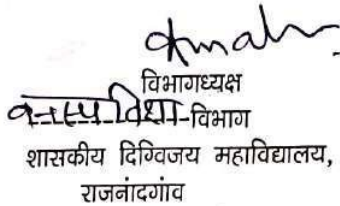 विभागध्यक्ष
वनस्पति विभाग
शासकीय दिग्विजय महाविद्यालय,
राजनांदगांव